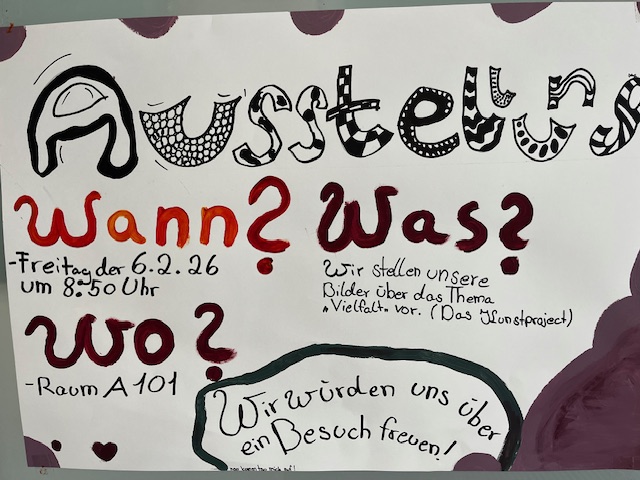 Ausstellung
Wann?
-Freitag der 6.2.26
um 8:50 Uhr
Was?
Wir stellen unsere
Bilder über das Thema
„Vielfalt" vor. (Das Kunstproject)
Wo?
-Raum A101
Wir würden uns über
ein Besuch freuen!